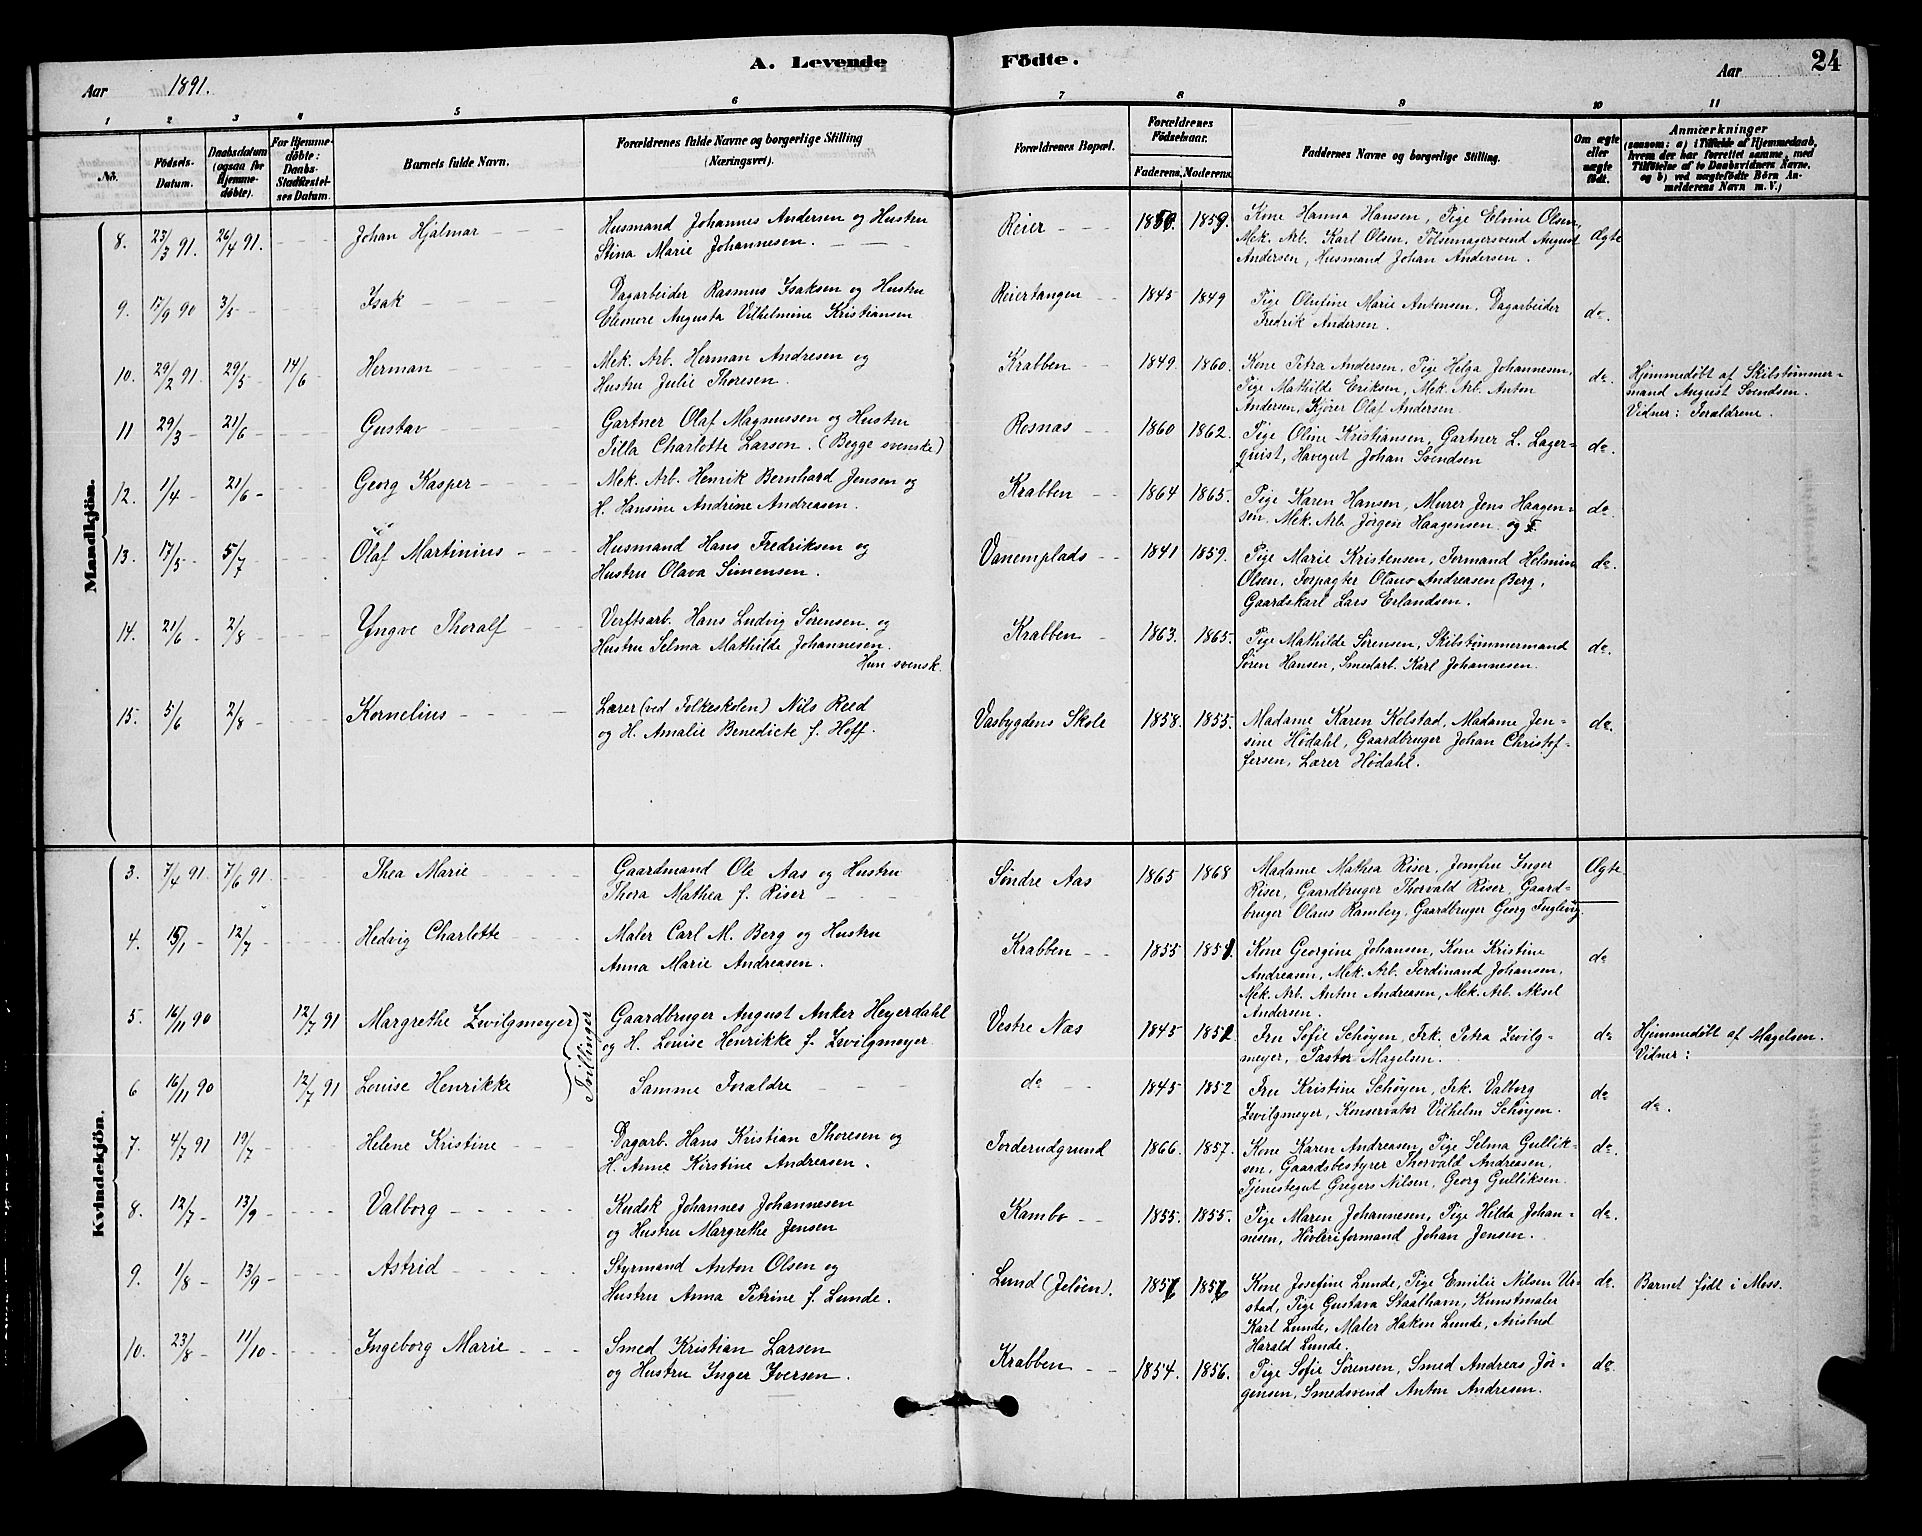 A. Levende Födte.
24
Aar 1891.
Aar
1 2 3 4 5 6 7 8 9 10 11
No.
Födsels-Datum.
Daabsdatum (ogsaa for Hjemme-döbte).
For Hjemme-döbte: Daabs-Stadfæstel-ses Datum.
Barnets fulde Navn.
Forældrenes fulde Navne og borgerlige Stilling (Næringsvei).
Forældrenes Bopæl.
Forældrenes Födselsaar.
Faderens. Moderens.
Faddernes Navne og borgerlige Stilling.
Om ægte eller uægte födt.
Anmærkninger
(saasom: a) i Tilfælde af Hjemmedaab, hvem der har forrettet samme, med Tilföielse af to Daabsvidners Navne, og b) ved uægtefödte Börn Anmelderens Navn m. V.)
Mandkjön.
8. 23/3 91. 26/4 91. Johan Hjalmar
Husmand Johannes Andersen og Hustru
Stina Marie Johannesen.
Reier 1859. 1859.
Kone Hanna Hansen, Pige Elvine Olsen,
Mek. Arb. Karl Olsen, Pølsemagersvend August
Andersen, Husmand Johan Andersen.
Ægte
9. 17/9 90 3/5 Isak
Dagarbeider Rasmus Isaksen og Hustru
Elenore Augusta Vilhelmine Kristiansen
Reiertangen 1845 1849
Pige Olutine Marie Antonsen, Dagarbeider
Fredrik Andersen.
do.
10. 29/2 91. 29/5 14/6 Herman
Mek. Arb. Herman Andresen og
Hustru Julie Thoresen.
Krabben 1849 1860.
Kone Petra Andersen, Pige Helga Johannesen,
Pige Mathilde Eriksen, Mek. Arb. Anton
Andersen, Kjører Olaf Andersen.
do.
Hjemmedøbt af Skibstømmer-
mand August Svendsen.
Vidner: Forældrene.
11 29/3 21/6 Gustav
Gartner Olaf Magnussen og Hustru
Tilla Charlotte Larson. (Begge svenske)
Rosnæs 1860 1862.
Pige Oline Kristiansen, Gartner L. Lager-
quist, Havegut Johan Svendsen
do.
12. 1/4 21/6 Georg Kasper
Mek. Arb. Henrik Bernhard Jensen og
H. Hansine Andrine Andreasen.
Krabben 1864 1865.
Pige Karen Hansen, Murer Jens Haagen-
sen, Mek. Arb. Jørgen Haagensen og F.
do.
13. 17/5 5/7 Olaf Martinius
Husmand Hans Fredriksen og
Hustru Olava Simensen.
Vanemplads 1841 1859.
Pige Marie Kristensen, Formand Helmin
Olsen, Forpagter Olaus Andreasen Berg,
Gaardskarl Lars Erlandsen.
do.
14. 21/6 2/8 Yngve Thoralf
Verftsarb. Hans Ludvig Sørensen og
Hustru Selma Mathilde Johannesen.
Hun svensk.
Krabben 1863. 1865.
Pige Mathilde Sørensen, Skibstømmermand
Søren Hansen, Smedarb. Karl Johannesen.
do.
15. 5/6 2/8 Kornelius
Lærer (ved Folkeskolen) Nils Reed
og H. Amalie Benedicte f. Hoff.
Vasbygdens Skole 1858. 1855.
Madame Karen Kolstad, Madame Jen-
sine Hødahl, Gaardbruger Johan Christof-
fersen, Lærer Hødahl.
do.
Kvindekjön.
3. 7/4 91. 7/6 91. Thea Marie
Gaardmand Ole Aas og Hustru
Thora Mathea f. Riser
Søndre Aas 1865 1868
Madame Mathea Riser, Jomfru Inger
Riser, Gaardbruger Thorvald Riser, Gaard-
bruger Olaus Ramberg, Gaardbruger Georg Yngling.
Ægte
4. 15/1 12/7 Hedvig Charlotte
Maler Carl M. Berg og Hustru
Anna Marie Andreasen.
Krabben 1855 1851.
Kone Georgine Johansen, Kone Kristine
Andreasen, Mek. Arb. Ferdinand Johansen,
Mek. Arb. Anton Andreasen, Mek. Arb. Aksel
Andersen.
do
5. 16/11 90 12/7 91 Margrethe Zwilgmeyer
Tvillinger
Gaardbruger August Anker Heyerdahl
og H. Louise Henrikke f. Zwilgmeyer
Vestre Næs 1845 1852
Fru Sofie Schøyen, Frk. Petra Zwilg-
meyer, Pastor Magelsen.
do
Hjemmedøbt af Magelsen.
Vidner:
6 16/11 90 12/7 91 Louise Henrikke
Samme Forældre
do 1845 1852
Fru Kristine Schøyen, Frk. Valborg
Zwilgmeyer, Konservator Vilhelm Schøyen.
do
do.
7. 4/7 91 19/7 Helene Kristine
Dagarb. Hans Kristian Thoresen og
H. Anne Kirstine Andreasen.
Torderudgrund 1866. 1857.
Kone Karen Andreasen, Pige Selma Gullik-
sen, Gaardsbestyrer Thorvald Andreasen,
Tjenestegut Gregers Nilsen, Georg Gulliksen.
do.
8. 12/7 13/9 Valborg
Kudsk Johannes Johannesen
og Hustru Margrethe Jensen
Kambo 1855. 1855.
Pige Maren Johannesen, Pige Hilda Johan-
nesen, Høvleriformand Johan Jensen.
do.
9. 1/8 13/9 Astrid
Styrmand Anton Olsen og
Hustru Anna Petrine f. Lunde.
Lund (Jeløen). 1856 1856
Kone Josefine Lunde, Pige Emilie Nilsen Ur-
stad, Pige Gustava Staalham, Kunstmaler
Karl Lunde, Maler Hakon Lunde, Avisbud
Harald Lunde.
do.
Barnet født i Moss.
10. 23/8 11/10 Ingeborg Marie
Smed Kristian Larsen
og Hustru Inger Iversen.
Krabben 1854. 1856.
Pige Sofie Sørensen, Smed Andreas Jør-
gensen, Smedsvend Anton Andresen.
do.